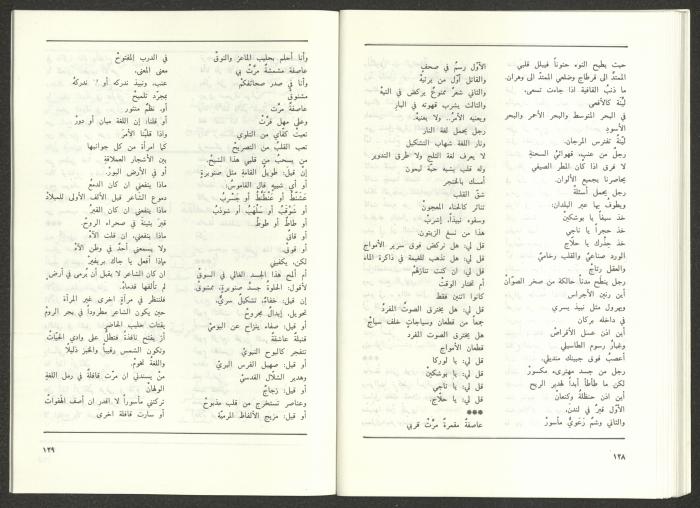 حيث يطيح النوء حنوناً فيبلل قلبي
الممتد الى قرطاج وضلعي الممتد الى وهران.
ما ذنبُ القافية اذا جاءت تسعى،
ليّنة كالأفعى
في البحر المتوسط والبحر الأحمر والبحر
الأسودِ
ليّنةً تفترس المرجان.
رجلٌ من عنبٍ، قهوائيُّ السحنةِ
لا فرق اذا كان المطر الصيفي
يحاصرنا بجميع الألوان.
رجل يحمل أسئلةً
ويطوف بها عبر البلدان:
خذ سيفاً يا بوشكين
خذ حجراً يا ناجي
خذ جذرك يا حلّاج
الورد صناعيٌّ والقلب رخامٌ
والعقل رتاجْ
رجل ينطح مدناً حالكة من صخر الصوّان
أين رنين الأجراس
ويهرول مثل نبيذ يسري
في داخله بركان
أين اذن عسل الأقراصْ
وغبار رسوم الطاسيلي
أعصبُ فوق جبينك منديلي.
رجل من جسد مهترىء مكسورْ
لكن ما طأطأ أبداً لهدير الريح
أين اذن حنظلةٌ وكنعان
الأوّل قبرٌ في لندن،
والثاني وشمٌ رَعَويٌّ مأسورْ
الأوّل رسمٌ في صحفٍ
والقاتل أوّل من يرثيهْ
والثاني شعرٌ ممنوعٌ يركض في التيهْ
والثالث يشرب قهوته في البارِ
ويعنيه الأمرُ.. ولا يعنيهْ.
رجل يحمل لغة النار
ونار اللغة شهاب التشكيل
لا يعرف لغة الثلج ولا طرق التدوير
وله قلب يشبه حبّة ليمون
أمسك بالخنجر
شقّ القلب
تناثر كالحناء المعجونْ
وسقوه نبيذاً، إشربْ
هذا من نسغ الزيتون.
قل لي: هل تركض فوق سرير الأمواج
قل لي: هل تذهب للقيمة في ذاكرة الماء
قل لي: ان كنت تنازلهمْ
أم تختار الوقتَ
كانوا اثنين فقط
هل يخترق الصوت المفردُ
جمعاً من قطعان وسياجات خلف سياجْ
هل يخترق الصوت المفردُ
قطعان الأمواجْ
قل لي: يا لوركا
قل لي: يا بوشكين
قل لي: يا ناجي
قل لي: يا حلّاج.
***
عاصفة مقمرة مرّتْ قربي
١٢٨
وأنا أحلم بحليب الماعز والنوق
عاصفة مشمشة مرّت بي
وأنا في صدر صحائفكم
مشنوق
عاصفةٌ مرّت
وعلى مهل فرّتْ
تعبتْ كفّاي من التلويح
تعب القلب من التصريحْ
من يسحبُ من قلبي هذا الشيخْ.
إن قيل: طويل القامة مثل صنوبرة
أو أي شبيهٍ قال القاموسْ:
أو طاطٌ أو طوطْ
أو قاقْ
أو قوقْ
لكن، يكفيني
أم ألمح هذا الجسد الغالي في السوق
لأقول: الحلوة جسدُ صنوبرةٍ، ممشوقْ
إن قيل: خفاءٌ، تشكيل سريٌّ،
تحويل، إبدال مجروحْ
أو قيل: صفاء ينزاح عن اليوميّ
قنبلة عاشقة
تنفجر كالبوح النبويّ
أو قيل: صهيل الفرس البريّ
وهدير الشلال القدسيّ
أو قيل: زجاجٌ
وعناصر تستخرج من قلب مذبوحْ
أو قيل: مزيج الألفاظ المرميّة
في الدرب المفتوحْ
معنى المعنى،
عنب، ونبيذ ندركه أو لا ندركهُ
بمجرّد تلميحْ
أو نظمٌ منثور
أو قلنا: إن اللغة مبان أو دورْ
واذا قلبنا الأمرَ
كما امرأة من كل جوانبها
بين الأشجار العملاقةِ
أو في الأرض البورْ.
ماذا ينفعني ان كان الدمعُ
دموع الشاعر قبل الألف الأولى للميلادْ
ماذا ينفعني ان كان القبرُ
قبرَ بثينة في صحراء الروحْ.
ماذا ينفعني، ان قلت الآهْ
ولا يسمعني أحدٌ في وطن الآهْ
ماذا أفعل يا جاك بريفير
ان كان الشاعر لا يقبل أن يُرمى في أرض
لم تألفها قدماهْ.
فلننظر في مرآة اخرى غير المرآة
حين يكون الشاعر مطروداً في بحر الروم
يقتات حليب الحاضرِ
أو يفتح نافذةً فتطلّ على وادي الحيّات
وتكون الشمس رقيباً والخبز ذليلا
واللغة تخومْ.
من يسندني ان مرّت قافلة في رمل اللغة
الولهانْ
تركتني مأسوراً لا اقدر ان أصف الهفوات
أو سارت قافلة اخرى
١٢٩